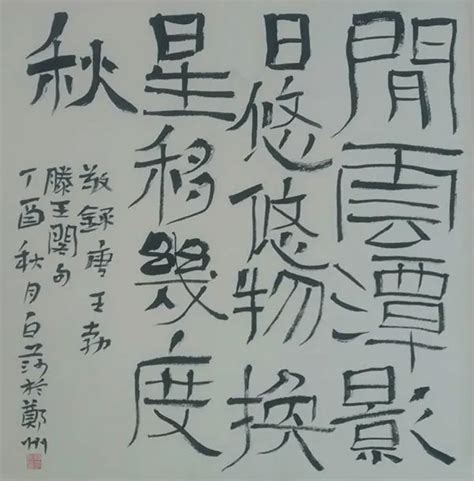 閒雲潭影
日悠悠物換
星移幾度
秋
敬録唐王勃
滕王閣句
丁酉秋月白於鄭州